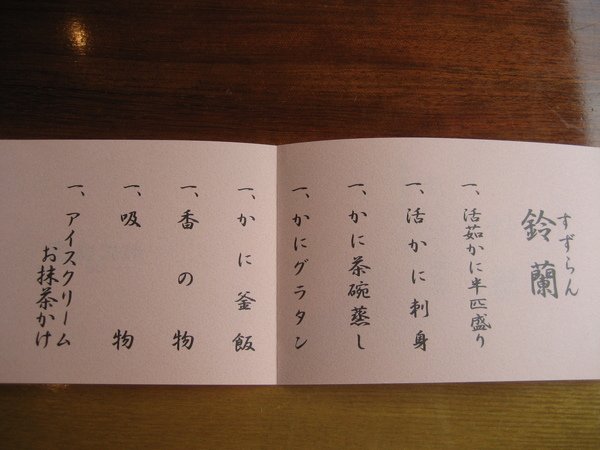 すずらん
鈴蘭
一、活茹かに半匹盛り
一、活かに刺身
一、かに茶碗蒸し
一、かにグラタン
一、かに釜飯
一、香の物
一、吸物
一、アイスクリーム
お抹茶かけ